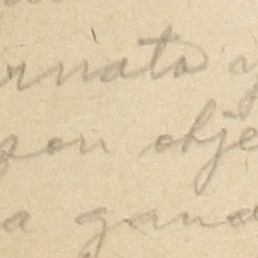 rnata y
son obje
a gana